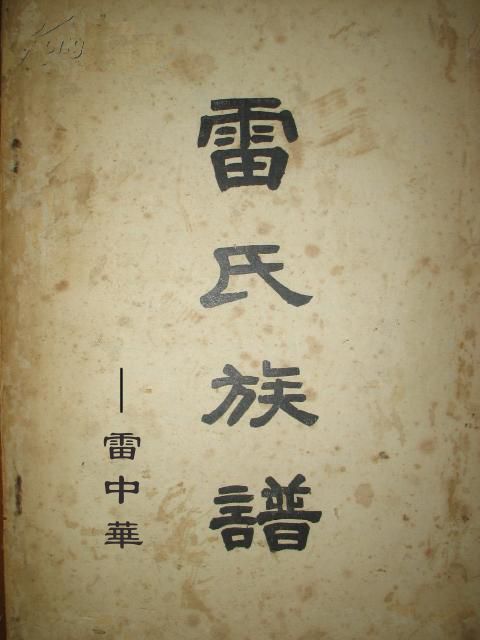 雷氏族譜
—雷中華